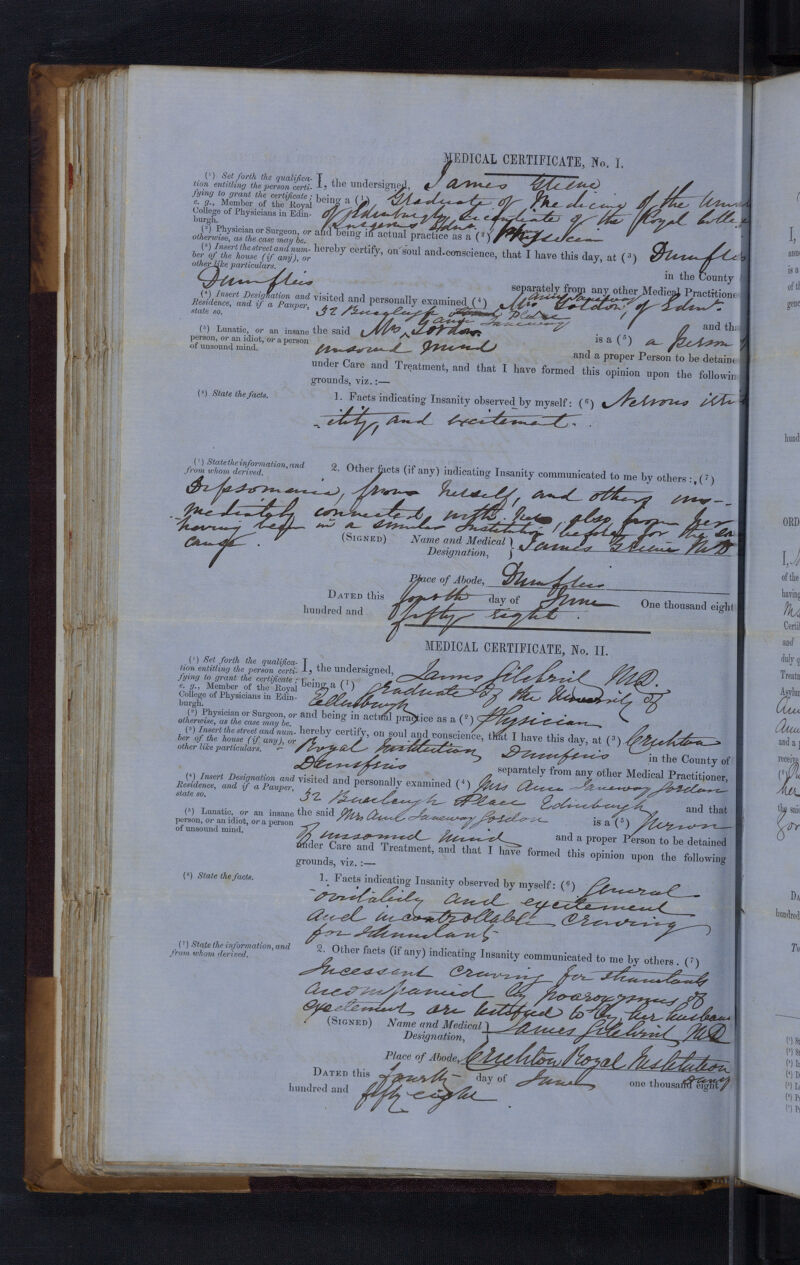 MEDICAL CERTIFICATE, No. I.
(1) Set forth the qualifica-
tion entitling the person certi-
fying to grant the certificate;
e. g., Member of the Royal
College of Physicians in Edin-
burgh.
I, the undersigned, James
being a (1) Graduate of Medicine of the
of Edinburgh, Licentiate of the Royal
Surgeons Edinr.
(2) Physician or Surgeon, or
otherwise, as the case may be.
and being in actual practice as a (2) Physician
(3) Insert the street and num-
ber of the house (if any), or
other like particulars.
hereby certify, on soul and conscience, that I have this day, at (3)
in the County
Dumfries
separately from any other Medical Practitione
(4) Insert Designation and
Residence, and if a Pauper,
state so.
visited and personally examined (4) Mrs Anne Janeway Gordon, of Edinr.
32 Buccleugh Place
(5) Lunatic, or an insane
person, or an idiot, or a person
of unsound mind.
the said Mrs Anne Janeway Gordon
is a (5) a person
unsound mind
and a proper Person to be detaine
under Care and Treatment, and that I have formed this opinion upon the followin
grounds, viz.:—
(6) State the facts.
1. Facts indicating Insanity observed by myself: (6) Nervous
and excitement.
(7) State the information, and
from whom derived.
2. Other facts (if any) indicating Insanity communicated to me by others: (7)
Dipsomania, from herself, and others im-
mediately connected with her, also from her
having been in a similar Institution before for the
cause.
(SIGNED) Name and Medical
Designation,
James M.D
Place of Abode, Dumfries
DATED this fourth day of June One thousand eight
hundred and fifty eight.
MEDICAL CERTIFICATE, No. II.
(1) Set forth the qualifica-
tion entitling the person certi-
fying to grant the certificate;
e. g., Member of the Royal
College of Physicians in Edin-
burgh.
I, the undersigned, James Gilchrist M.D.
being a (1) Graduate of the University of
Edinburgh
(2) Physician or Surgeon, or
otherwise, as the case may be.
and being in actual practice as a (2) Physician
(3) Insert the street and num-
ber of the house (if any), or
other like particulars.
hereby certify, on soul and conscience, that I have this day, at (3) Crichton
Royal Institution Dumfries in the County of
Dumfries
separately from any other Medical Practitioner,
(4) Insert Designation and
Residence, and if a Pauper,
state so.
visited and personally examined (4) Mrs Anne Janeway Gordon
32 Buccleugh Place Edinburgh
(5) Lunatic, or an insane
person, or an idiot, or a person
of unsound mind.
the said Mrs Anne Janeway Gordon
and that
is a (5) Person
of unsound mind
and a proper Person to be detained
under Care and Treatment, and that I have formed this opinion upon the following
grounds, viz.:—
(6) State the facts.
1. Facts indicating Insanity observed by myself: (6) General
and excitement
and incontrollable craving
for stimulants
(7) State the information, and
from whom derived.
2. Other facts (if any) indicating Insanity communicated to me by others. (7)
Incessant craving for stimulants
accompanied by paroxysms of
excitement are testified to by her husband
(SIGNED) Name and Medical
Designation,
James Gilchrist M.D
Place of Abode, Crichton Royal Institution
DATED this fourth day of June one thousand eight
hundred and fifty-eight